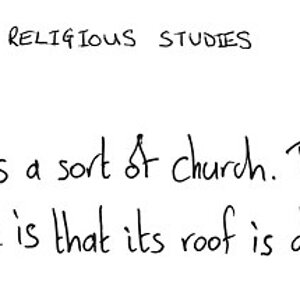 RELIGIOUS STUDIES
s a sort of church.
is that its roof is